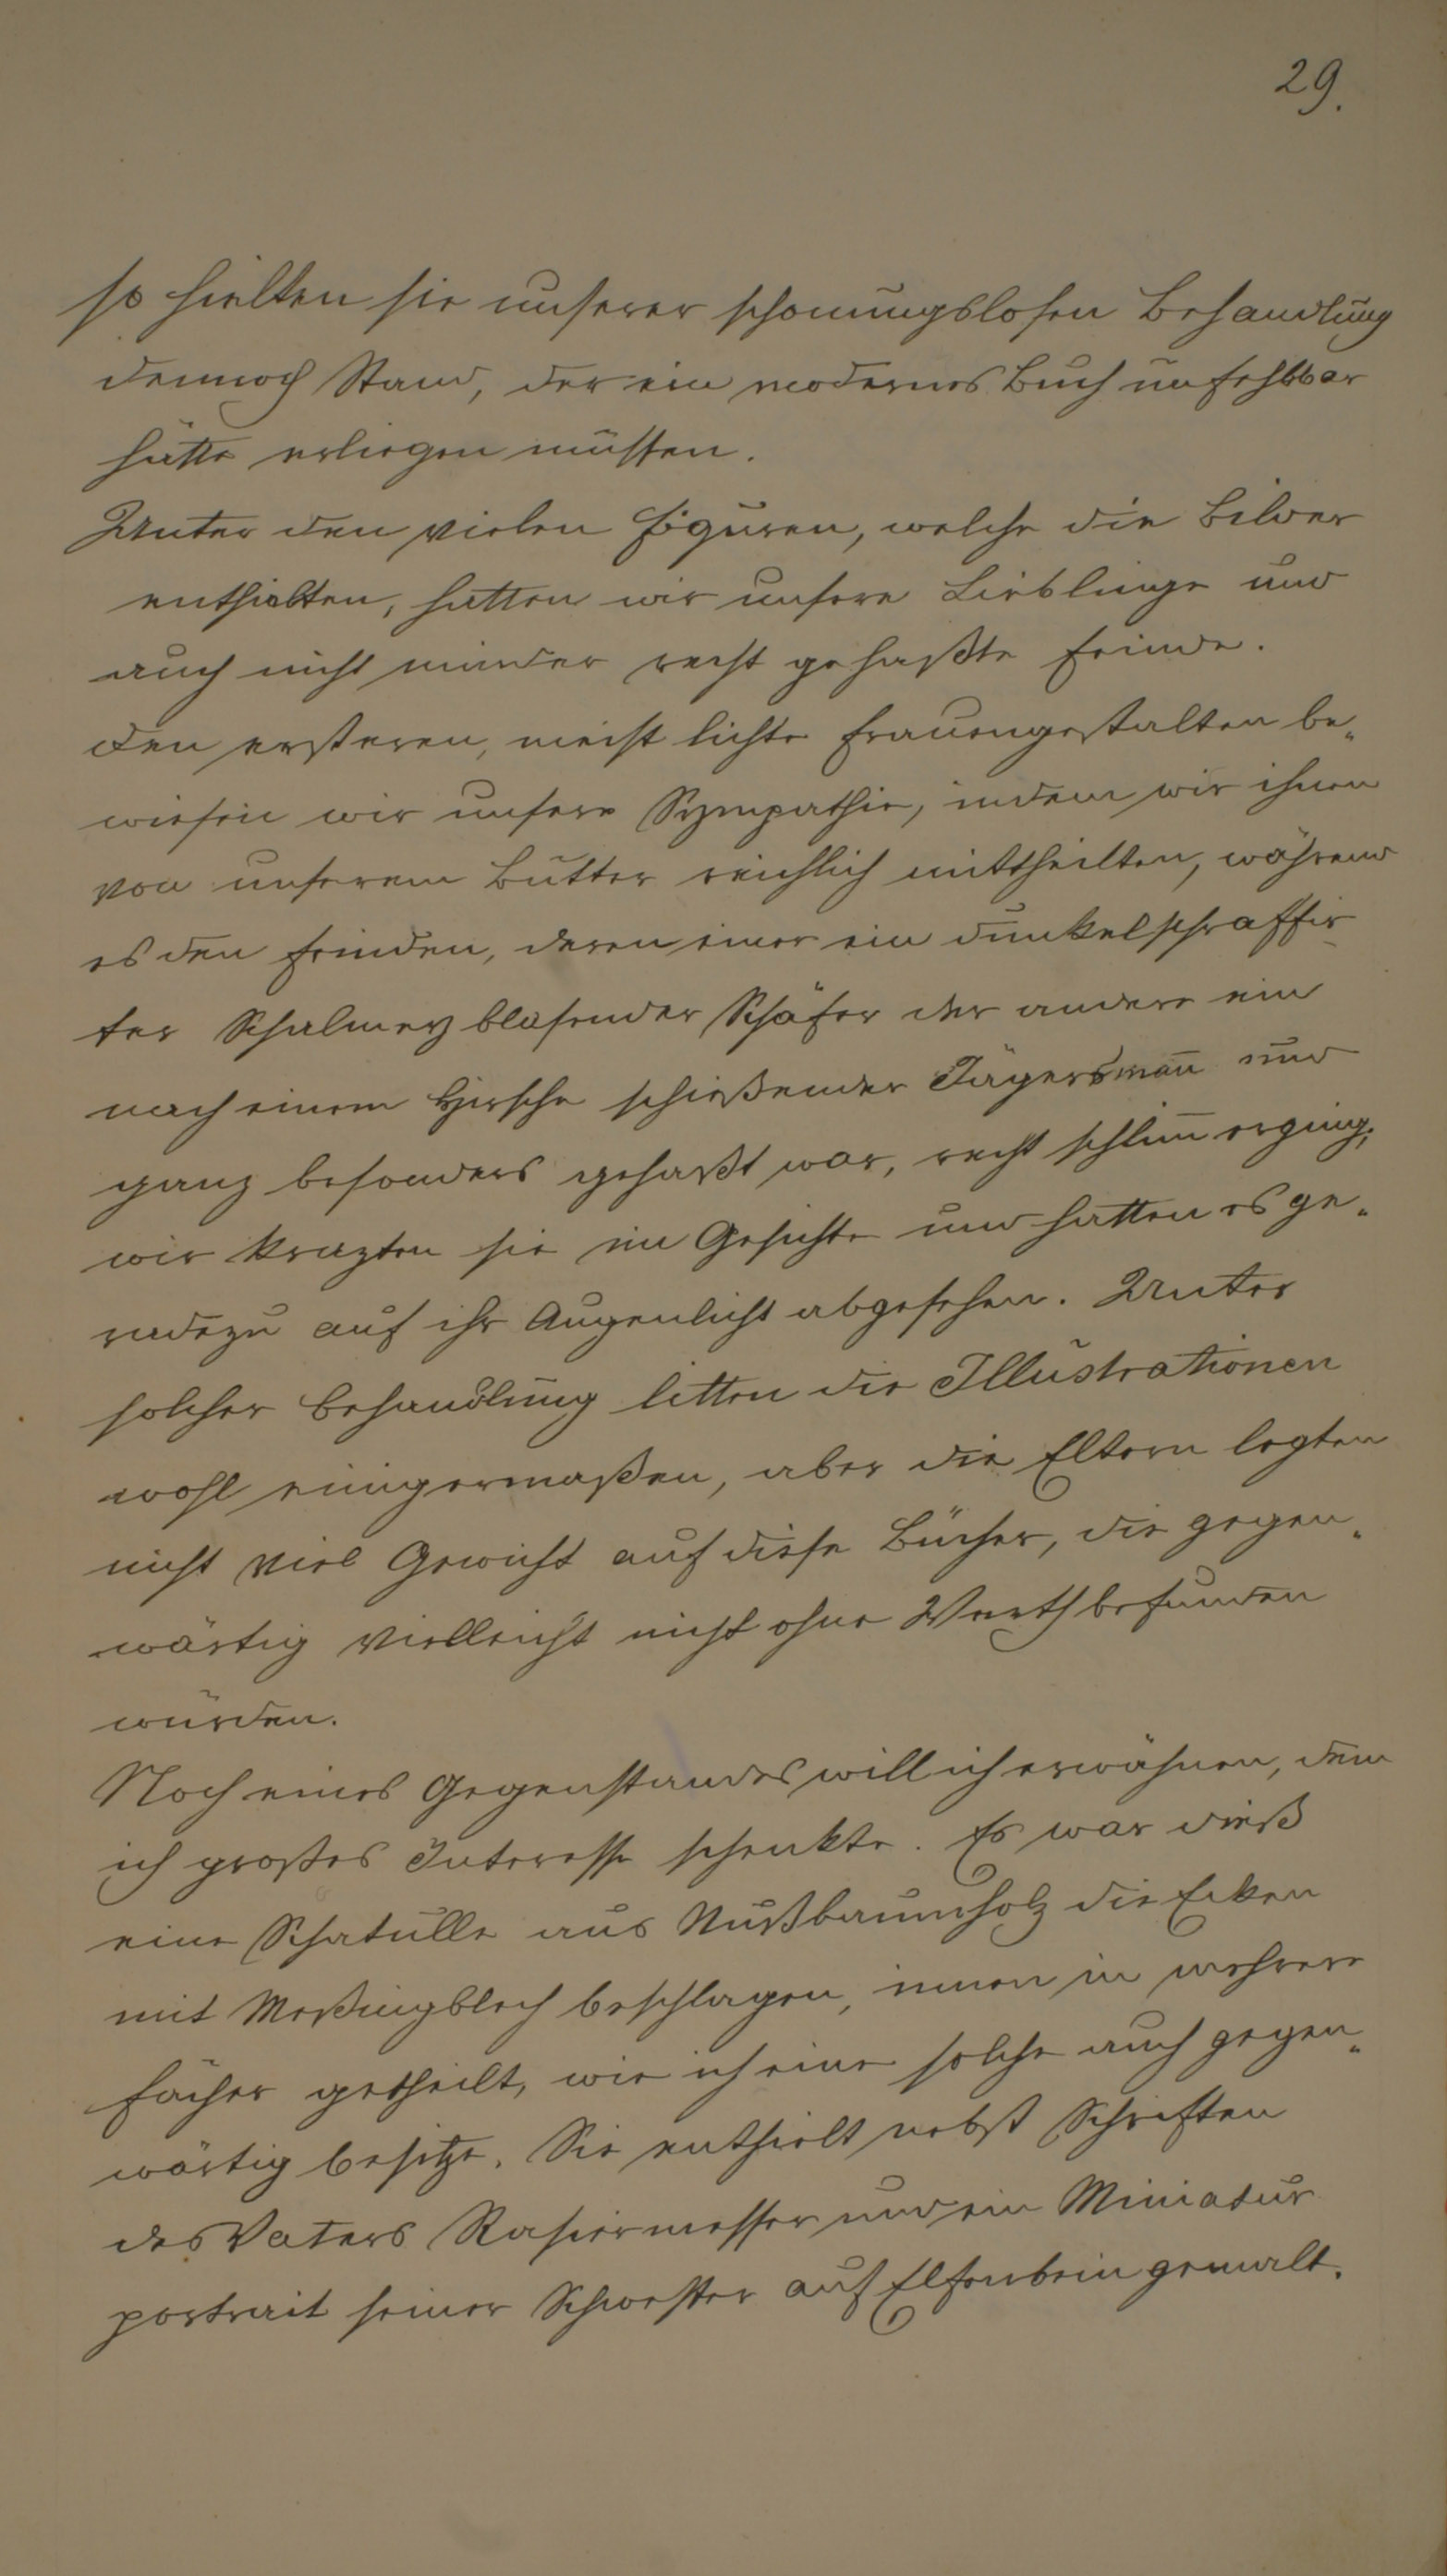 29.
so hielten sie unserer schonungslosen Behandlung
dennoch Stand, der ein modernes Buch unfehlbar
hätte erliegen müssen.
Unter den vielen Figuren, welche die Bilder
enthielten, hatten wir unsere Lieblinge und
auch nicht minder recht gehaßte Feinde.
Den ersteren, meist lichte Frauengestalten be„
wiesen wir unsere Sympathie, indem wir ihnen
von unserem Butter reichlich mittheilten, während
es den Feinden, deren einer ein dunkelschraffir„
ter Schalmey blasender Schäfer der andere ein
nach einem Hirsche schießender Jägersman̅ und
ganz besonders gehaßt war, recht schlim̅ erging;
wir krazten sie im Gesichte und hatten es ge„
radezu auf ihr Augenlicht abgesehen. Unter
solcher Behandlung litten die Illustrationen
wohl einigermaßen, aber die Eltern legten
nicht viel Gewicht auf diese Bücher, die gegen„
wärtig vielleicht nicht ohne Werth befunden
würden.
Noch eines Gegenstandes will ich erwähnen, dem
ich großes Interesse schenkte. Es war dieß
eine Schatulle aus Nußbaumholz die Ecken
mit Meßingblech beschlagen, innen in mehrere
Fächer getheilt, wie ich eine solche auch gegen„
wärtig besitze. Sie enthielt nebst Schriften
des Vaters Rasiermesser und ein Miniatur
portrait seiner Schwester auf Elfenbein gemalt.